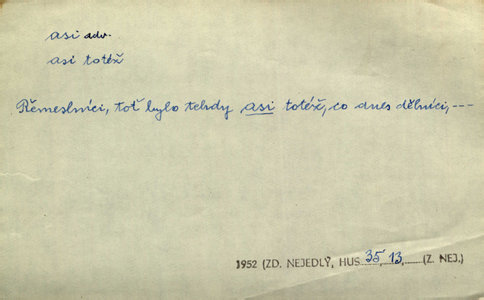 asi adv.
asi totéž
Řemeslníci, toť bylo tehdy asi totéž, co dnes dělníci, ---
1952 (ZD. NEJEDLÝ, HUS 35, 13, (Z. NEJ.)